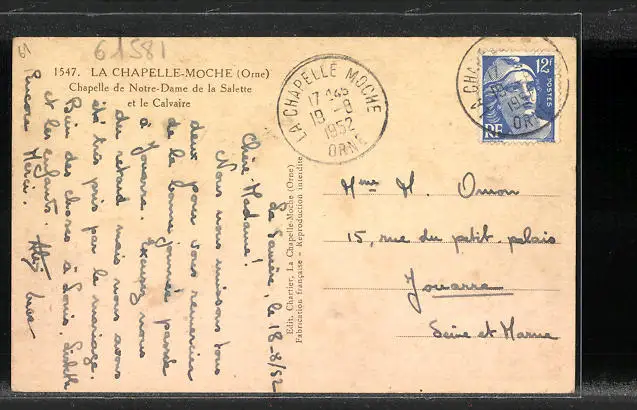 61
61581
1547. LA CHAPELLE-MOCHE (Orne)
Chapelle de Notre-Dame de la Salette
et le Calvaire
LA CHAPELLE MOCHE
17 H45
19 - 8
1952
ORNE
LA CHAPELLE
17
19
1952
ORNE
12F
POSTES
RF
Edit. Chartier, La Chapelle-Moche (Orne)
Fabrication française - Reproduction interdite
La Sauvère, le 18-8/52
Chère Madame!
Nous nous unissons tous
deux pour vous remercier
de la bonne journée passée
à Jouarre. Excusez nous
du retard mais nous avons
été très pris par le mariage.
Bien des choses à Louis, Lisbeth
et les enfants.
Encore Merci.
Mme H. Omon
15, rue du petit palais
Jouarre
Seine et Marne